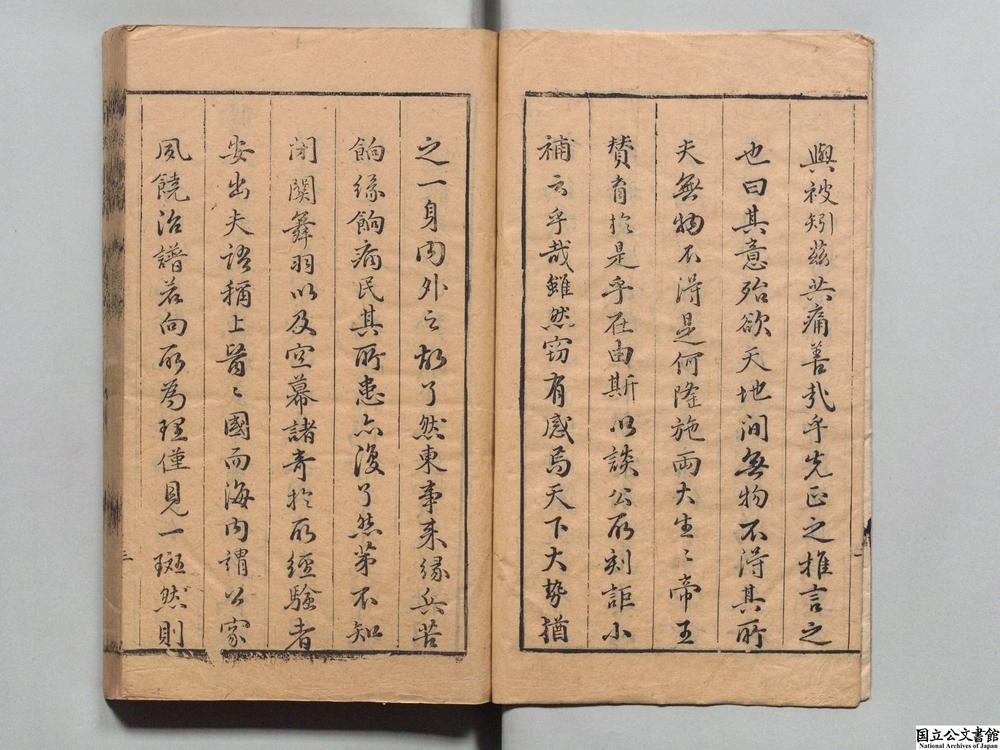 與被矧茲共痛善哉乎先正之推言之
也曰其意殆欲天地间無物不得其所
夫無物不得是何隆施兩大生〻帝王
賛育於是乎在由斯以談公所刻詎小
補云乎哉雖然窃有感焉天下大势猶
之一身内外之故了然東事来缘兵苦
餉缘餉病民其所患亦復了然苐不知
闭関舞羽以及空幕諸奇於所經驗者
安出夫语稱上醫〻國而海内謂公家
夙饒治譜若向所為理僅見一斑然則
三
国立公文書館
National Archives of Japan